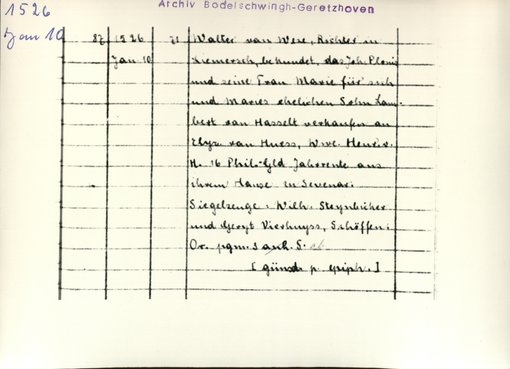 Archiv Bodelschwingh-Geretzhoven
1526
Jan 10
87 1526 71 Walter van Were, Richter in
Jan 10 Liemersch, bekundet, das Joh.
und seine Frau Marie für sich
und Maries ehelichen Sohn Lam-
bert van Hasselt verkaufen an
Elyz. van Huess, Wwe. Henrix
H. 16 Phil-Gld Jahrrente aus
ihrem Hause in Sevenar.
Siegelzeuge: Wilh. Steynbicher
und Geryt Vierhuyss, Schöffen.
Or. pgm. 3 anh. S.